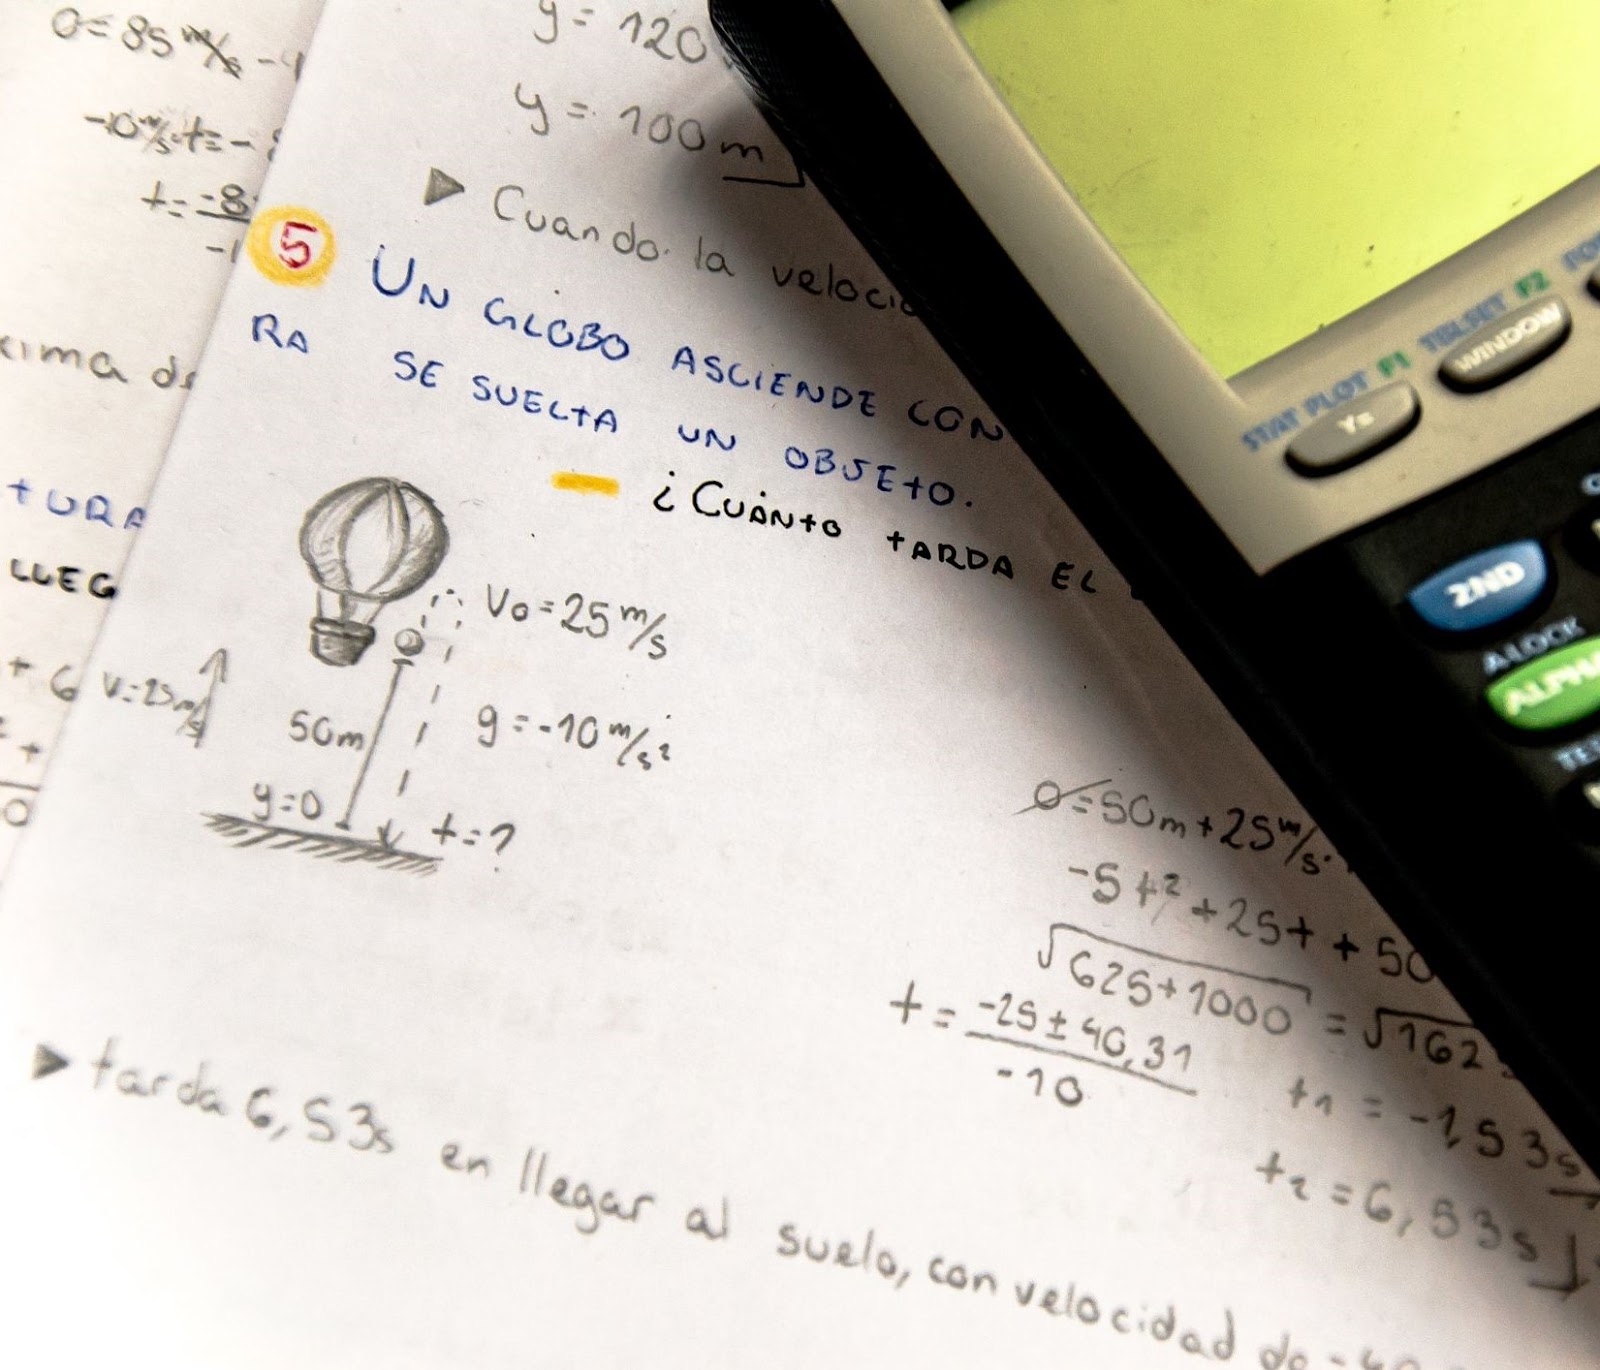 0 = 85 m/s -
-10 m/s · t = -
t = -8
-1
xima de
TURA
LLEG
+ 6
y = 120
y = 100 m
► Cuando la velocid
5 UN GLOBO ASCIENDE CON
RA SE SUELTA UN OBJETO.
¿CUÁNTO TARDA EL
V0 = 25 m/s
V = 25 m/s
50m
g = -10 m/s²
y=0
t=?
0 = 50m + 25 m/s ·
-5t² + 25t + 50
√625+1000 = √162
t = -25 ± 40,31
-10
t1 = -1,53s
t2 = 6,53s
► tarda 6,53s en llegar al suelo, con velocidad de -40
STAT PLOT F1
TBLSET F2
Y=
WINDOW
2ND
A-LOCK
ALPHA